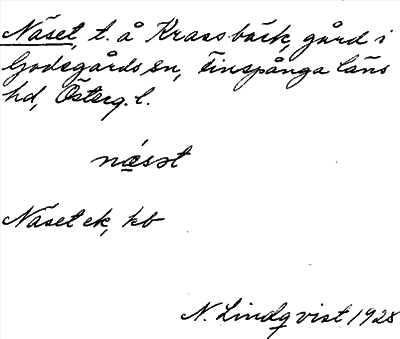 Näset, t. å Krassbäck, gård i
Godegårds sn, Finspånga läns
hd, Österg. l.
næ̀sət
Näset ek, kb
N. Lindqvist 1928